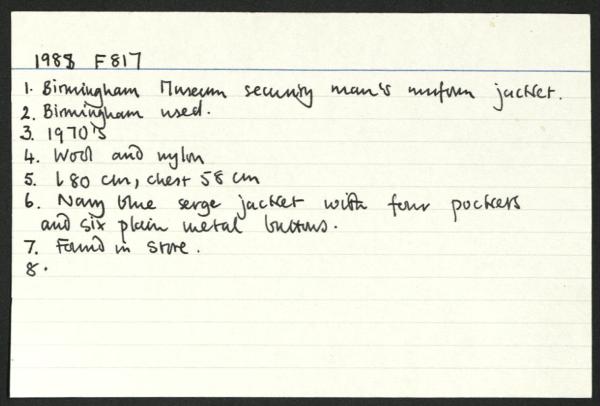 1988 F817
1. Birmingham Museum security man's uniform jacket.
2. Birmingham used.
3. 1970's
4. Wool and nylon
5. L 80 cm, chest 58 cm
6. Navy blue serge jacket with four pockets
and six plain metal buttons.
7. Found in store.
8.